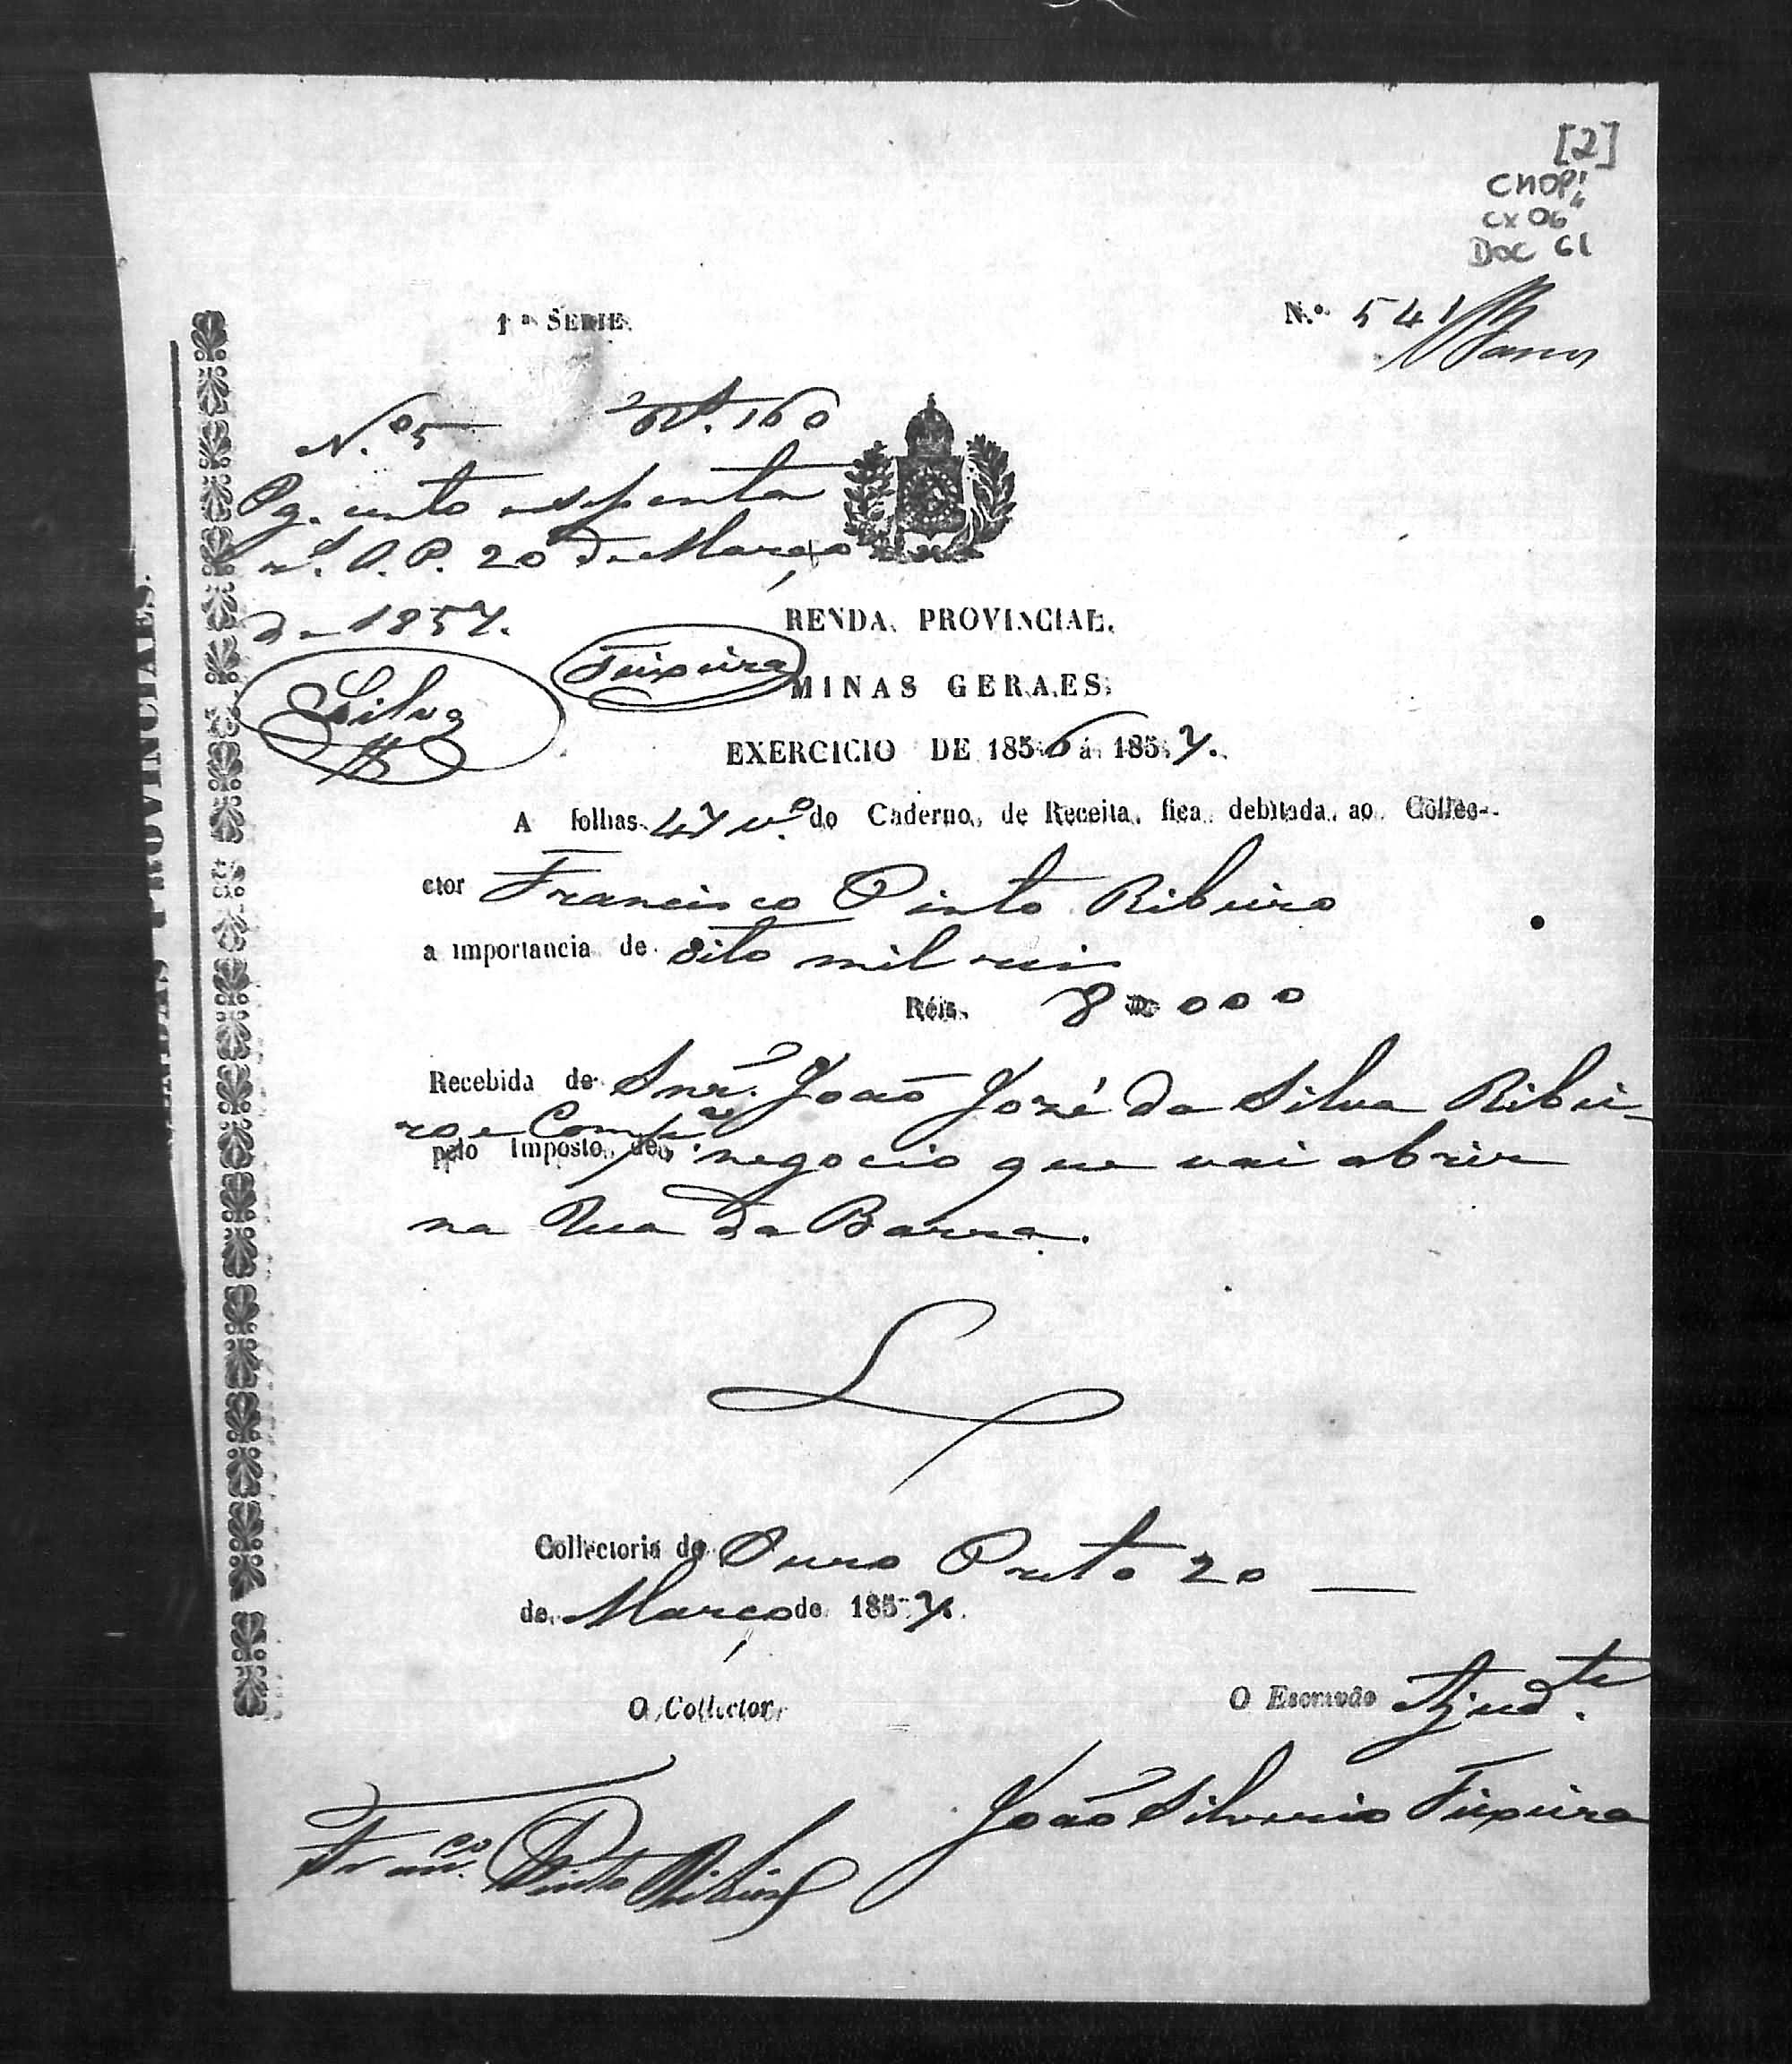 [2]
CMOP
CX 06
DOC 61
1.ª SERIE.
N.º 541
N.º 5 Rs. 160
Pg. cento e sessenta
rs. O. P. 20 de Março
de 1857.
Silva
Teixeira
RENDA PROVINCIAL.
MINAS GERAES.
EXERCICIO DE 1856 á 1857.
A folhas 47 v.º do Caderno de Receita fica debitada ao Colle-
ctor Francisco Pinto Ribeiro
a importancia de oito mil reis
Réis. 8 000
Recebida do Snr. João José da Silva Ribei-
ro e Comp.ª
pelo Imposto de negocio que vai abrir
na Rua da Barra.
Collectoria do Ouro Preto 20
de Março de 1857.
O Collector
O Escrivão Ajud.te
Franc.co Pinto Ribeiro
João Silverio Teixeira
PROVINCIAES.